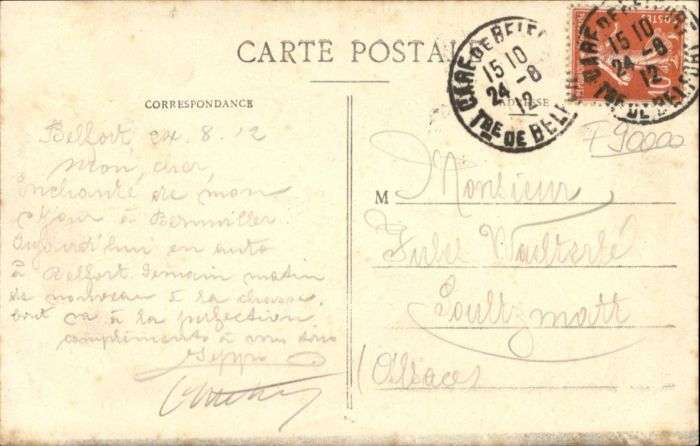 CARTE POSTALE
CORRESPONDANCE
ADRESSE
GARE DE BELFORT
15 10
24 - 8
12
Tre DE BELFORT
GARE DE BELFORT
15 10
24 - 8
12
Tre DE BELFORT
POSTES
10
F 90000
Belfort, 24. 8. 12
Mon cher,
Enchanté de mon
séjour à Bernwiller
Aujourd'hui en auto
à Belfort. Demain matin
de nouveau à la chasse.
tout va à la perfection
compliments à vous tous
Seppi
M
Monsieur
Jules
Soultzmatt
(Alsace)